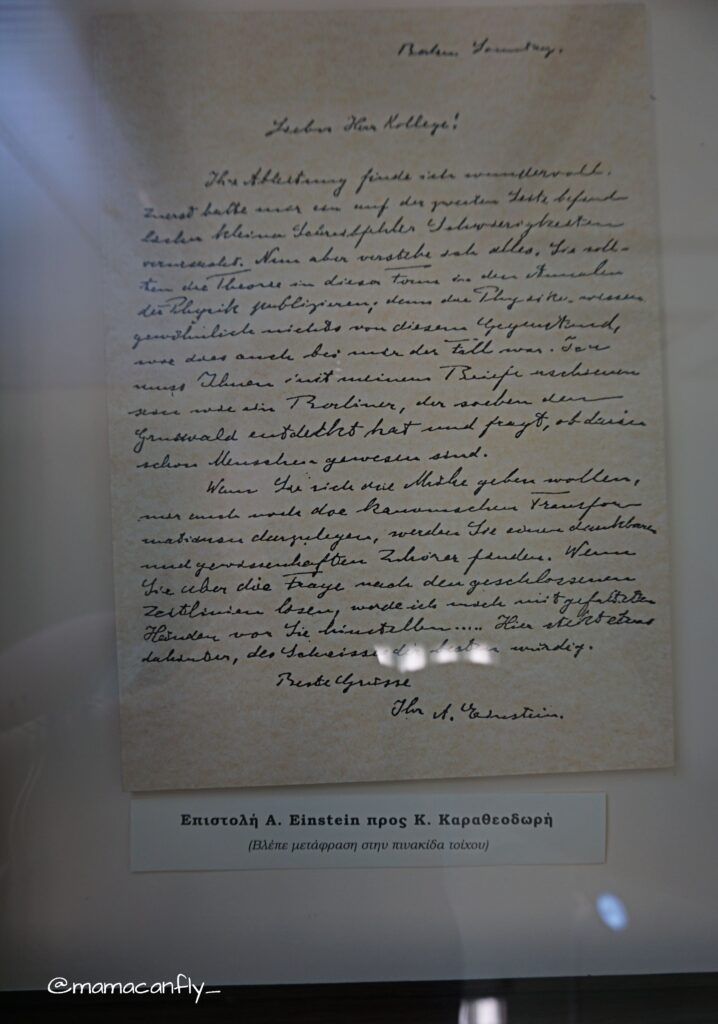 Berlin Sonntag.
Lieber Herr Kollege!
Ihre Ableitung finde ich wundervoll.
Zuerst hatte mir ein auf der zweiten Seite befind-
licher kleiner Schreibfehler Schwierigkeiten
verursacht. Nun aber verstehe ich alles. Sie soll-
ten die Theorie in dieser Form in den Annalen
der Physik publizieren; denn die Physiker wissen
gewöhnlich nichts von diesem Gegenstand,
wie dies auch bei mir der Fall war. Ich
muss Ihnen mit meinem Briefe erschienen
sein wie ein Berliner, der soeben den
Grunewald entdeckt hat und fragt, ob darin
schon Menschen gewesen sind.
Wenn Sie sich die Mühe geben wollen,
mir auch noch die kanonischen Transfor
mationen darzulegen, werden Sie einen dankbaren
und gewissenhaften Zuhörer finden. Wenn
Sie aber die Frage nach den geschlossenen
Zeitlinien lösen, werde ich mich mit gefalteten
Händen vor Sie hinstellen..... Hier steckt etwas
dahinter, des Schweisses der Besten würdig.
Beste Grüsse
Ihr A. Einstein.
Επιστολή A. Einstein προς Κ. Καραθεοδωρή
(Βλέπε μετάφραση στην πινακίδα τοίχου)
@mamacanfly_